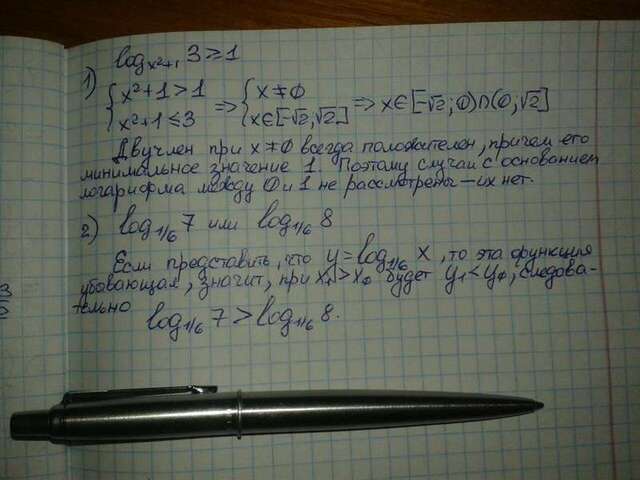 1) log_{x²+1} 3 ≥ 1
{x²+1 > 1 ⇒ {x ≠ 0 ⇒ x∈[-√2; 0)∩(0; √2]
{x²+1 ≤ 3 {x∈[-√2, √2]
Двучлен при x ≠ 0 всегда положителен, причем его
минимальное значение 1. Поэтому случаи с основанием
логарифма между 0 и 1 не рассмотрены – их нет.
2) log_{1/6} 7 или log_{1/6} 8
Если представить, что y = log_{1/6} x, то эта функция
убывающая, значит, при x₁ > x₀ будет y₁ < y₀, следова-
тельно
log_{1/6} 7 > log_{1/6} 8.